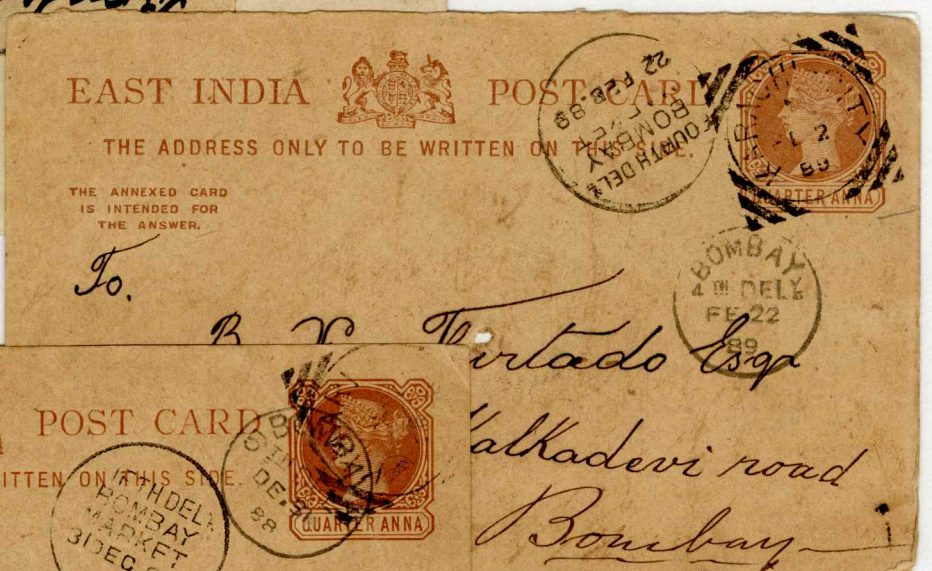 EAST INDIA POST CARD
THE ADDRESS ONLY TO BE WRITTEN ON THIS SIDE.
THE ANNEXED CARD
IS INTENDED FOR
THE ANSWER.
FOURTH DELY
BOMBAY
22 FEB.89
QUARTER ANNA
89
BOMBAY
DELY
FE 22
89
To.
Furtado Esqr
Kalkadevi road
Bombay
POST CARD
ITTEN ON THIS SIDE.
QUARTER ANNA
DE 31
88
TH DELY
BOMBAY
MARKET
31 DEC